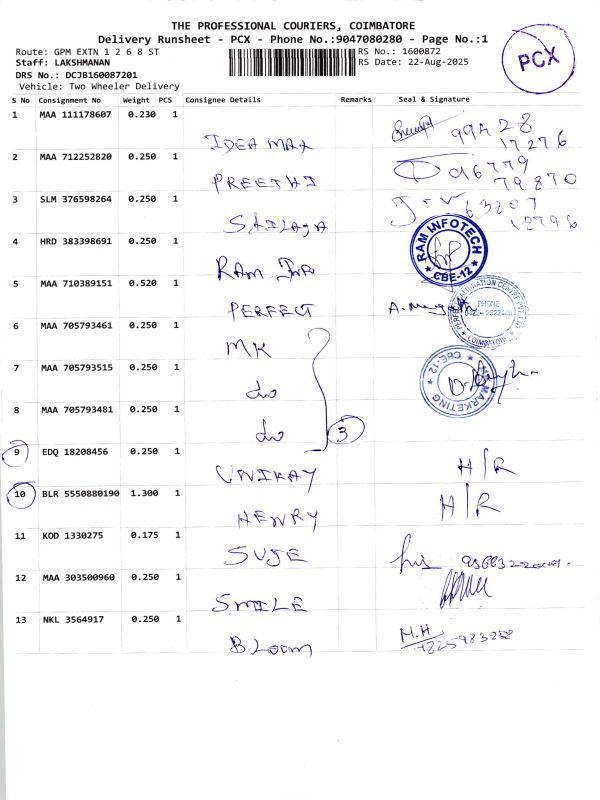 THE PROFESSIONAL COURIERS, COIMBATORE
Delivery Runsheet - PCX - Phone No.:9047080280 - Page No.:1
Route: GPM EXTN 1 2 6 8 ST
RS No.: 1600872
Staff: LAKSHMANAN
RS Date: 22-Aug-2025
DRS No.: DCJB160087201
Vehicle: Two Wheeler Delivery
PCX
S No Consignment No Weight PCS Consignee Details Remarks Seal & Signature
1 MAA 111178607 0.230 1
IDEA MAX 99428
17276
2 MAA 712252820 0.250 1
PREETHI 96779
79870
3 SLM 376598264 0.250 1
SAILAJA 63807
12796
4 HRD 383398691 0.250 1
RAM Info
RAM INFOTECH
CBE-12
5 MAA 710389151 0.520 1
PERFECT
PHONE
COIMBATORE
6 MAA 705793461 0.250 1
MK
7 MAA 705793515 1 0.250
do
CBE-12
MARKETING
8 MAA 705793481 0.250 1
do 3
9 EDQ 18208456 0.250 1
UNIKAY H/R
10 BLR 5550880190 1.300 1
HENRY H/R
11 KOD 1330275 0.175 1
SUJE
12 MAA 303500960 0.250 1
SMILE
13 NKL 3564917 0.250 1
BLOOM M.H